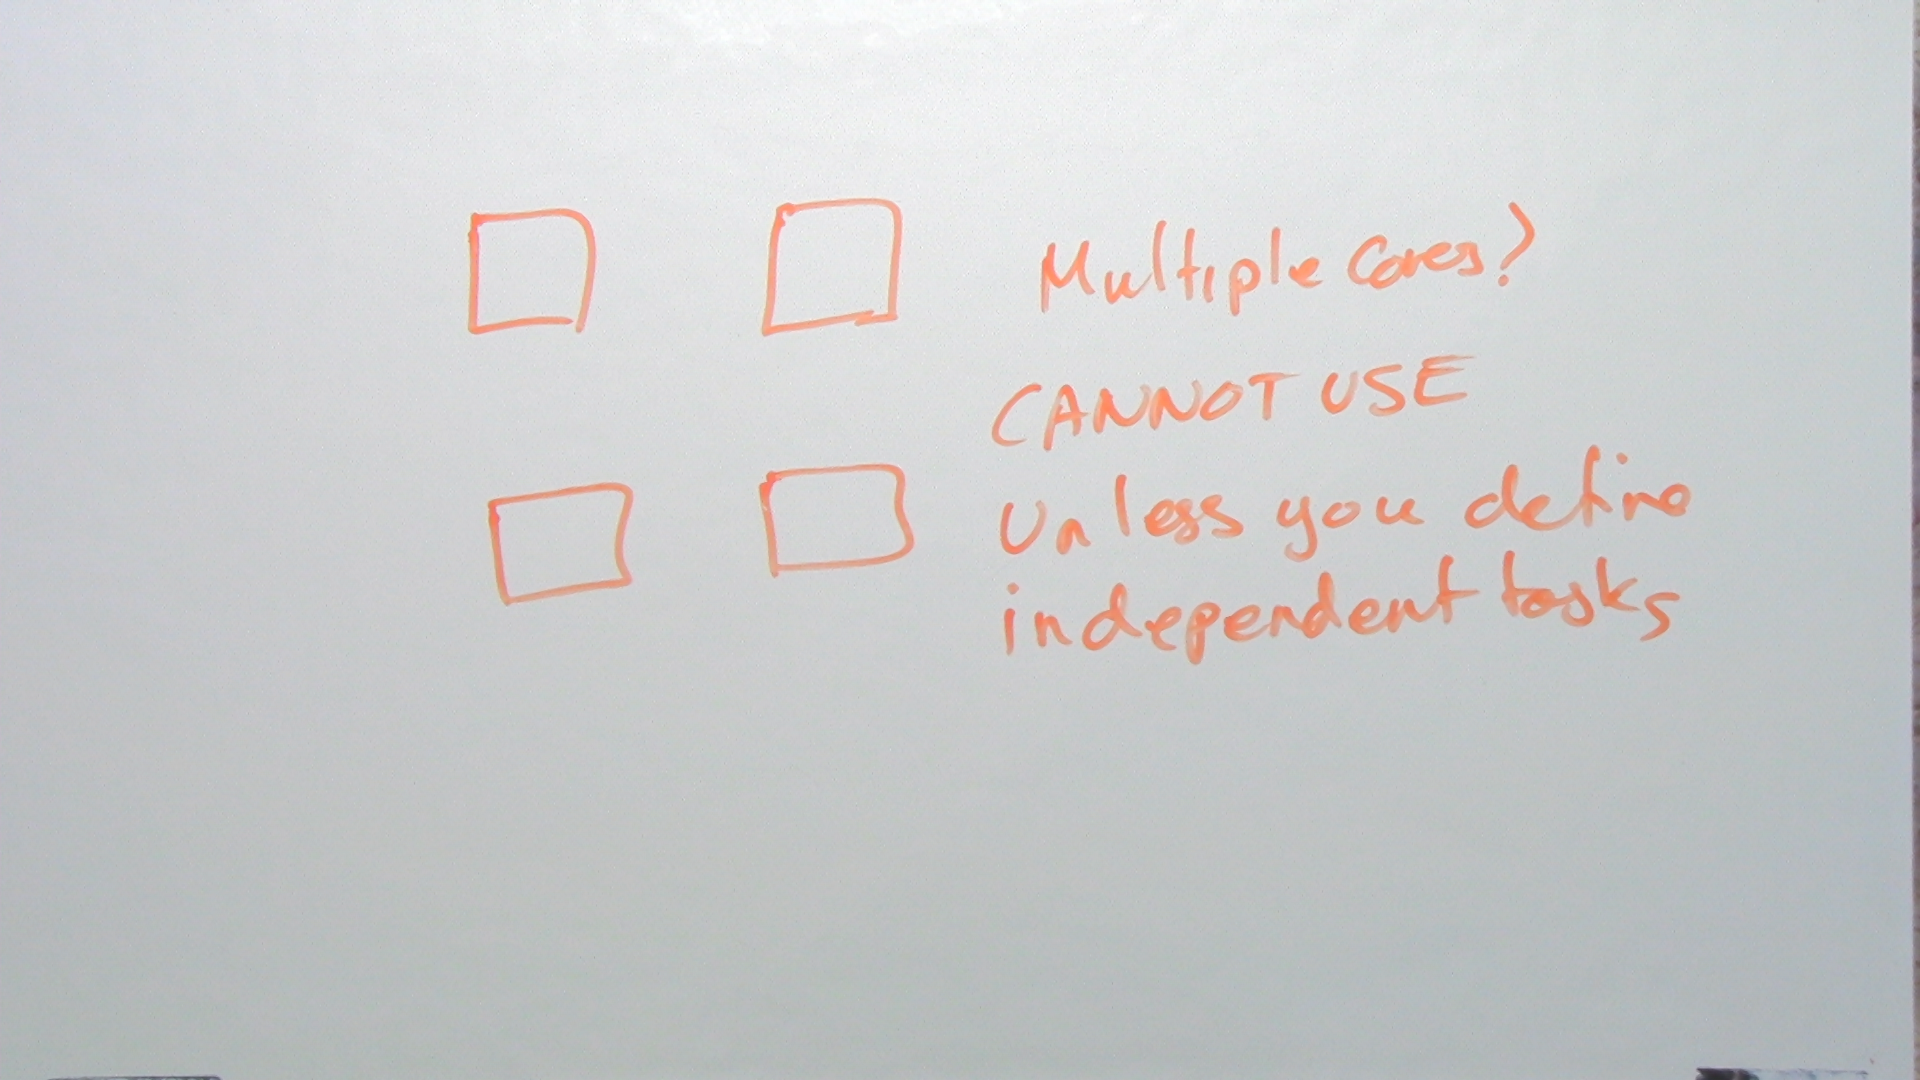 Multiple Cores?
CANNOT USE
Unless you define
independent tasks